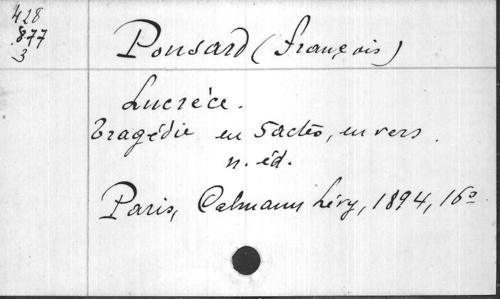 428
877
3
Ponsard (François)
Lucréce.
Tragédie en 5 actes, en vers.
n. éd.
Paris, Calmann Lévy, 1894, 16º